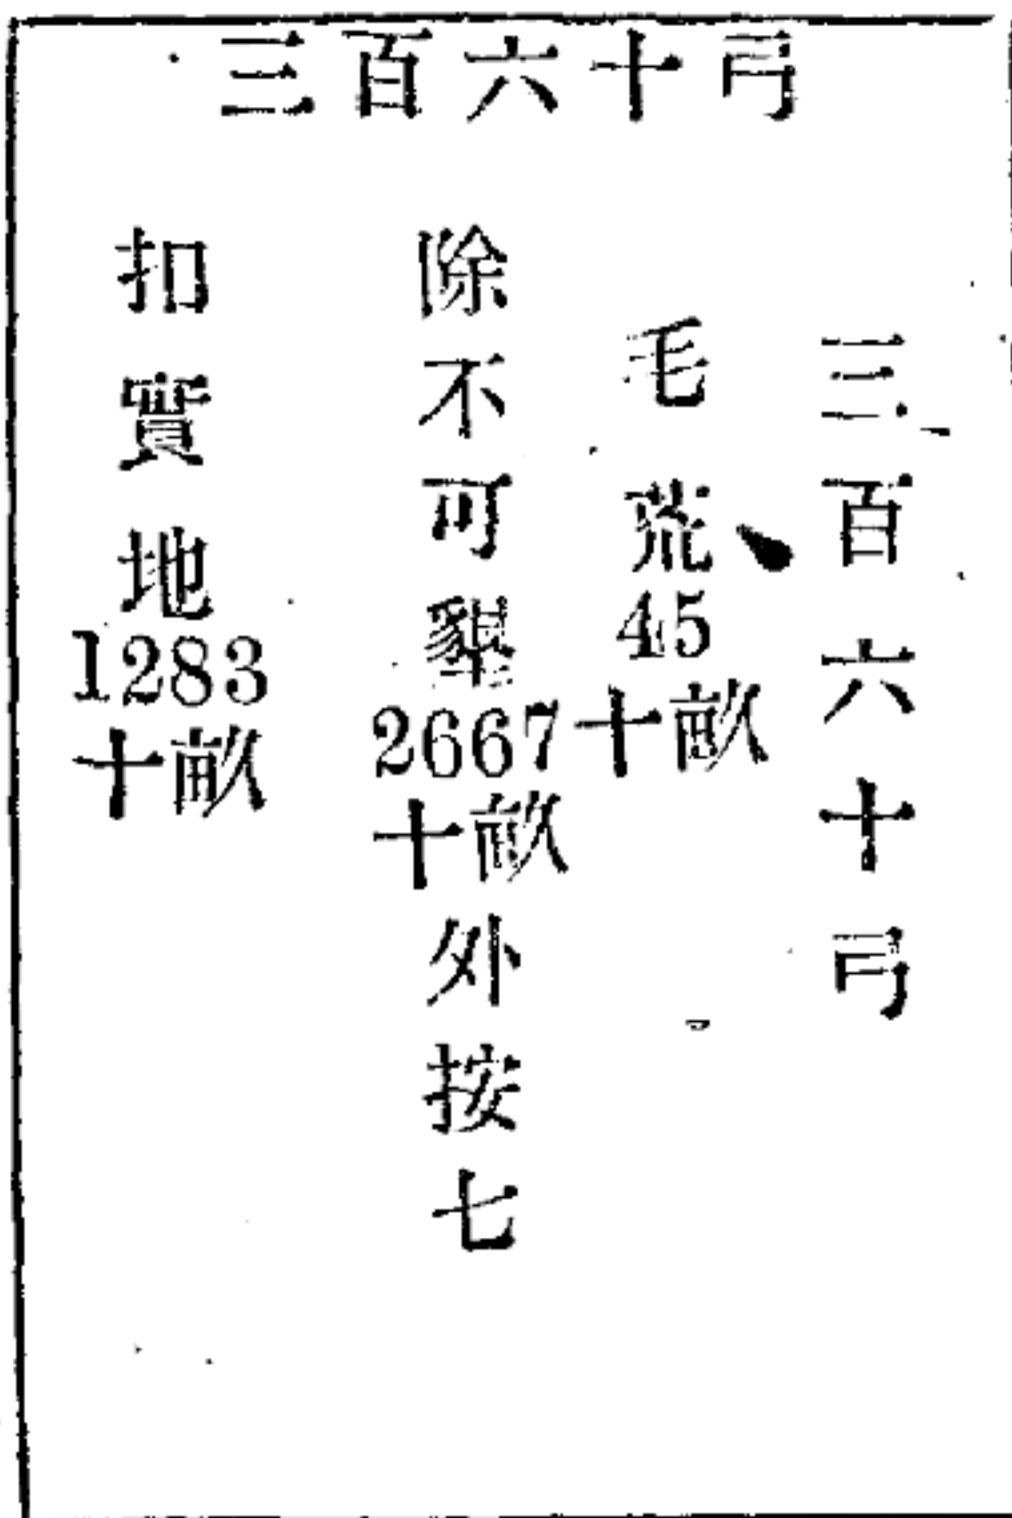 三百六十弓
三百六十弓
毛荒45十畝
除不可墾2667十畝外按七
扣實地1283十畝